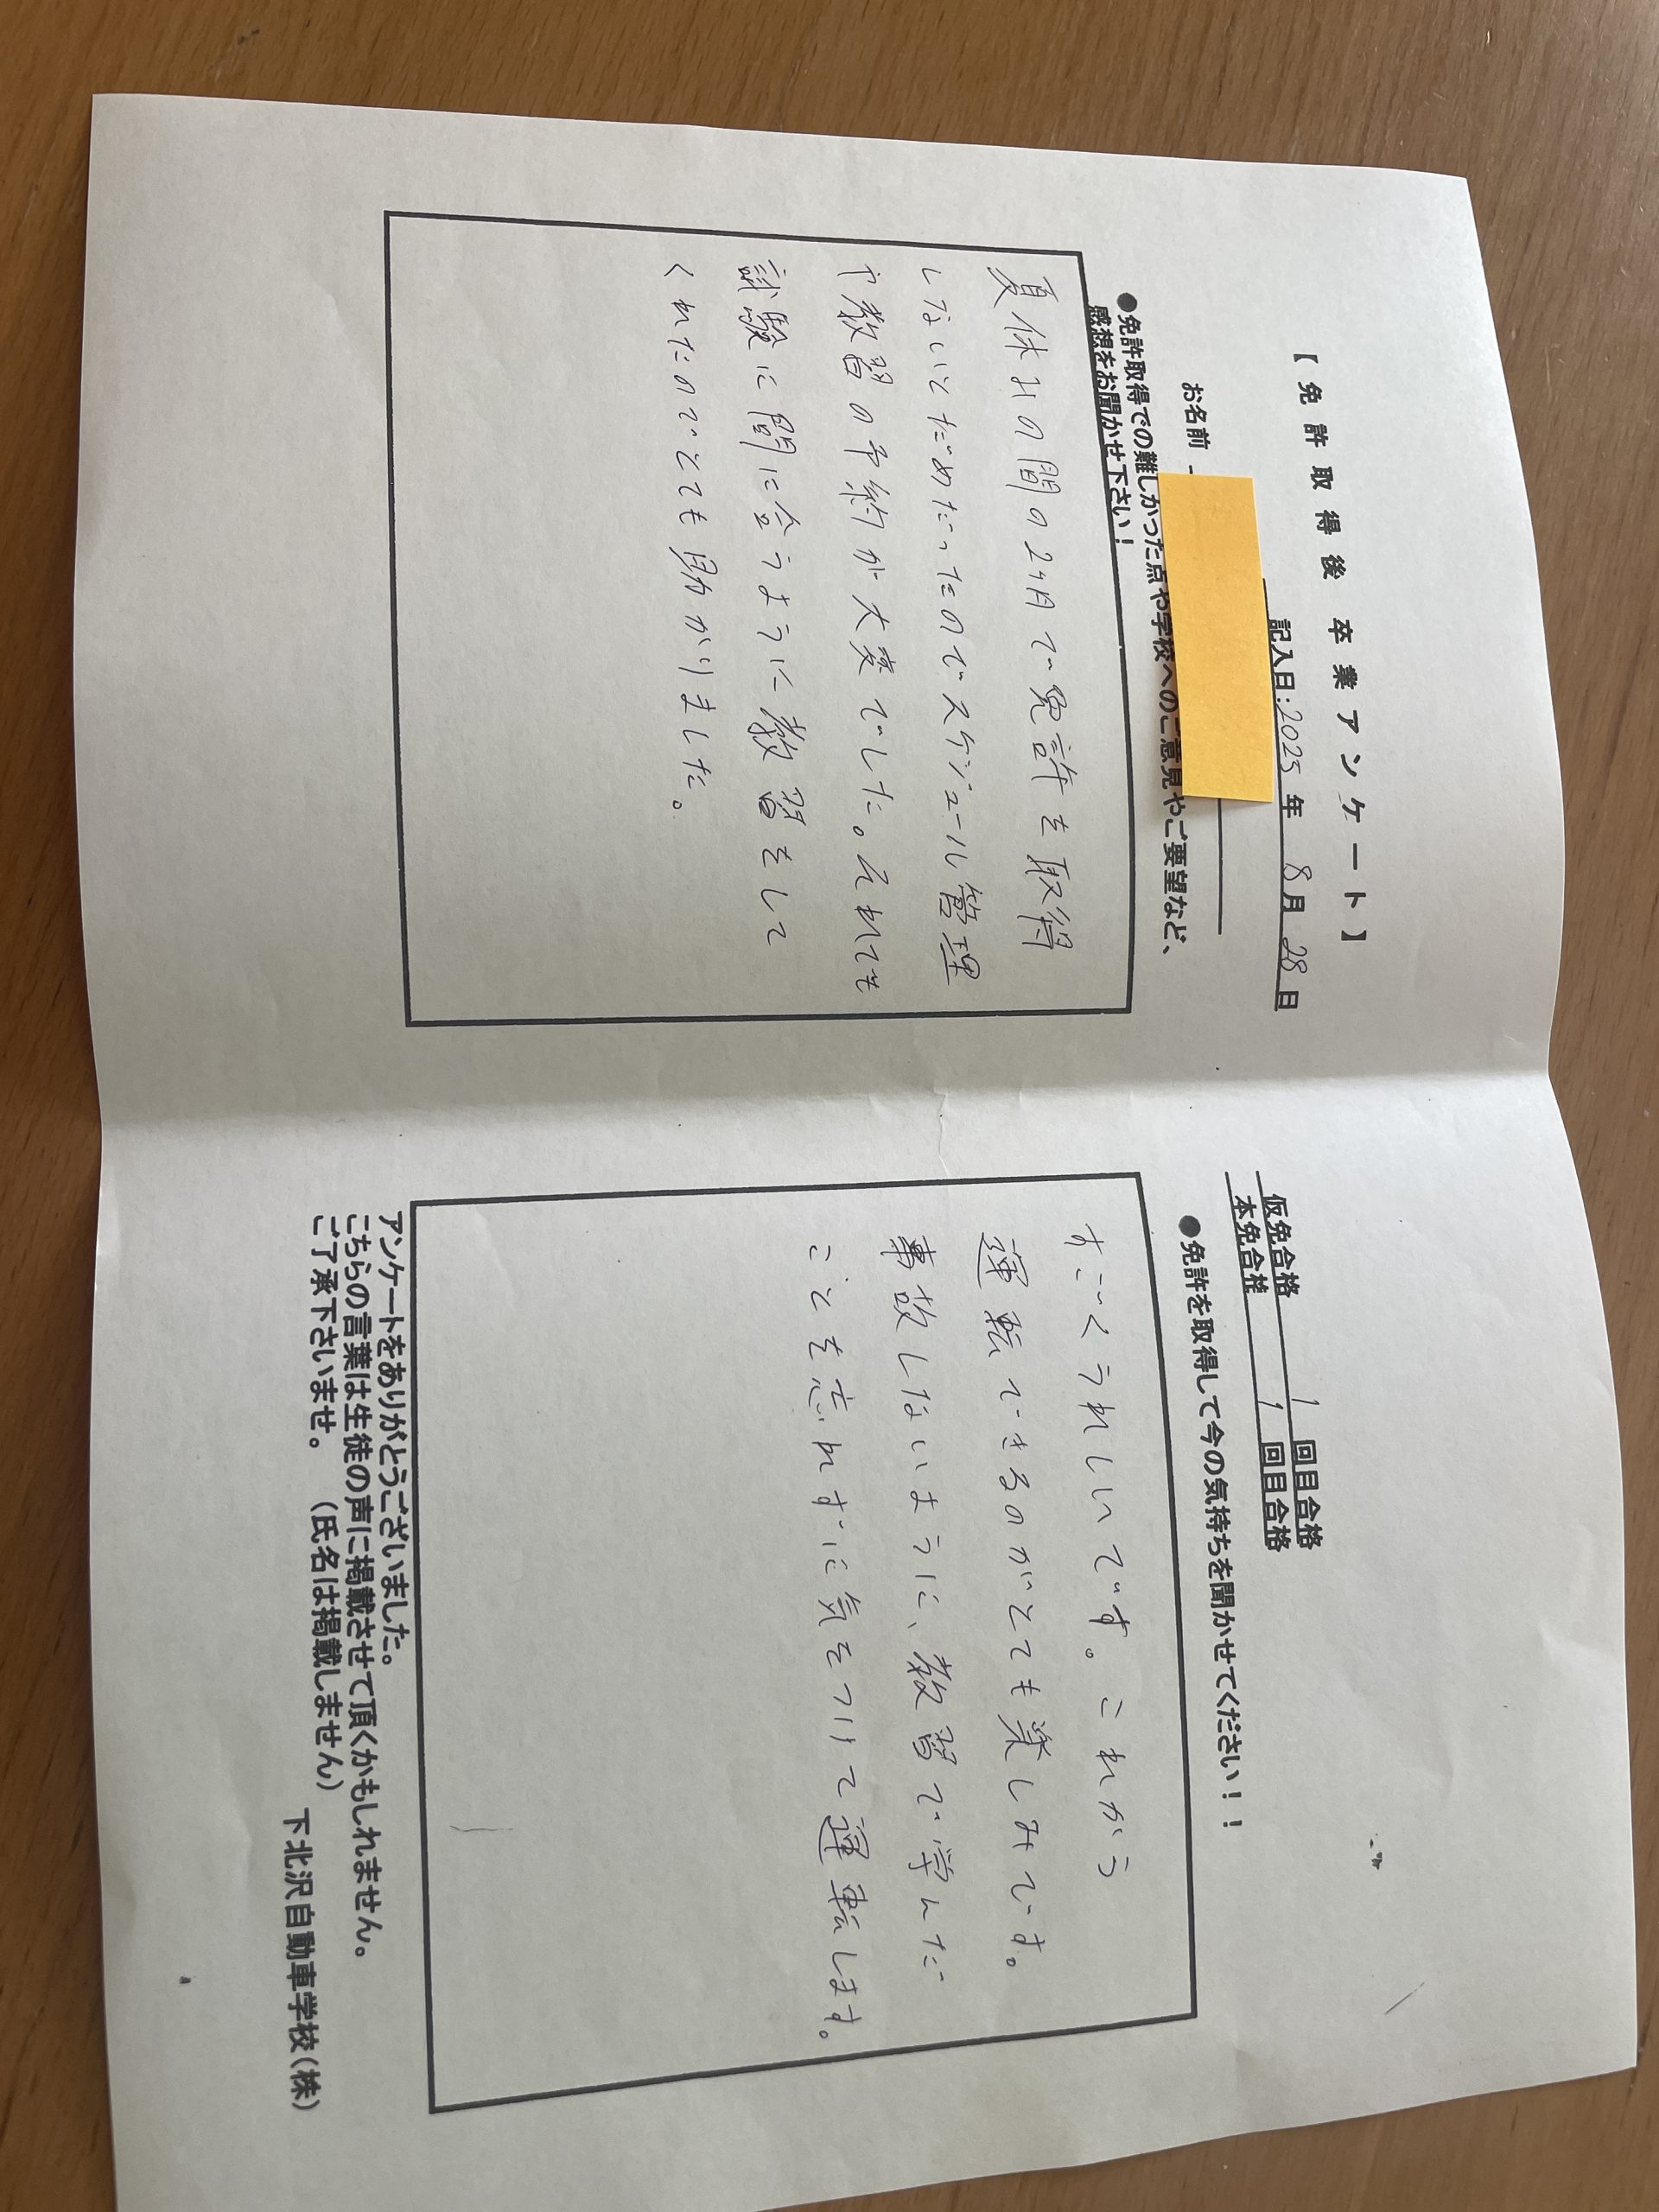 【 免 許 取 得 後 卒 業 ア ン ケ ー ト 】
記入日:2025 年 8 月 28 日
お名前
●免許取得での難しかった点や学校へのご意見やご要望など、
感想をお聞かせ下さい！
夏休みの間の2ヶ月で免許を取得
しないとだめだったのでスケジュール管理
や教習の予約が大変でした。それでも
試験に間に合うように教習をして
くれたのでとても助かりました。
仮免合格 1 回目合格
本免合格 1 回目合格
●免許を取得して今の気持ちを聞かせてください！！
すごくうれしいです。これから
運転できるのがとても楽しみです。
事故しないように、教習で学んだ
ことを忘れずに気をつけて運転します。
アンケートをありがとうございました。
こちらの言葉は生徒の声に掲載させて頂くかもしれません。
ご了承下さいませ。（氏名は掲載しません）
下北沢自動車学校(株)